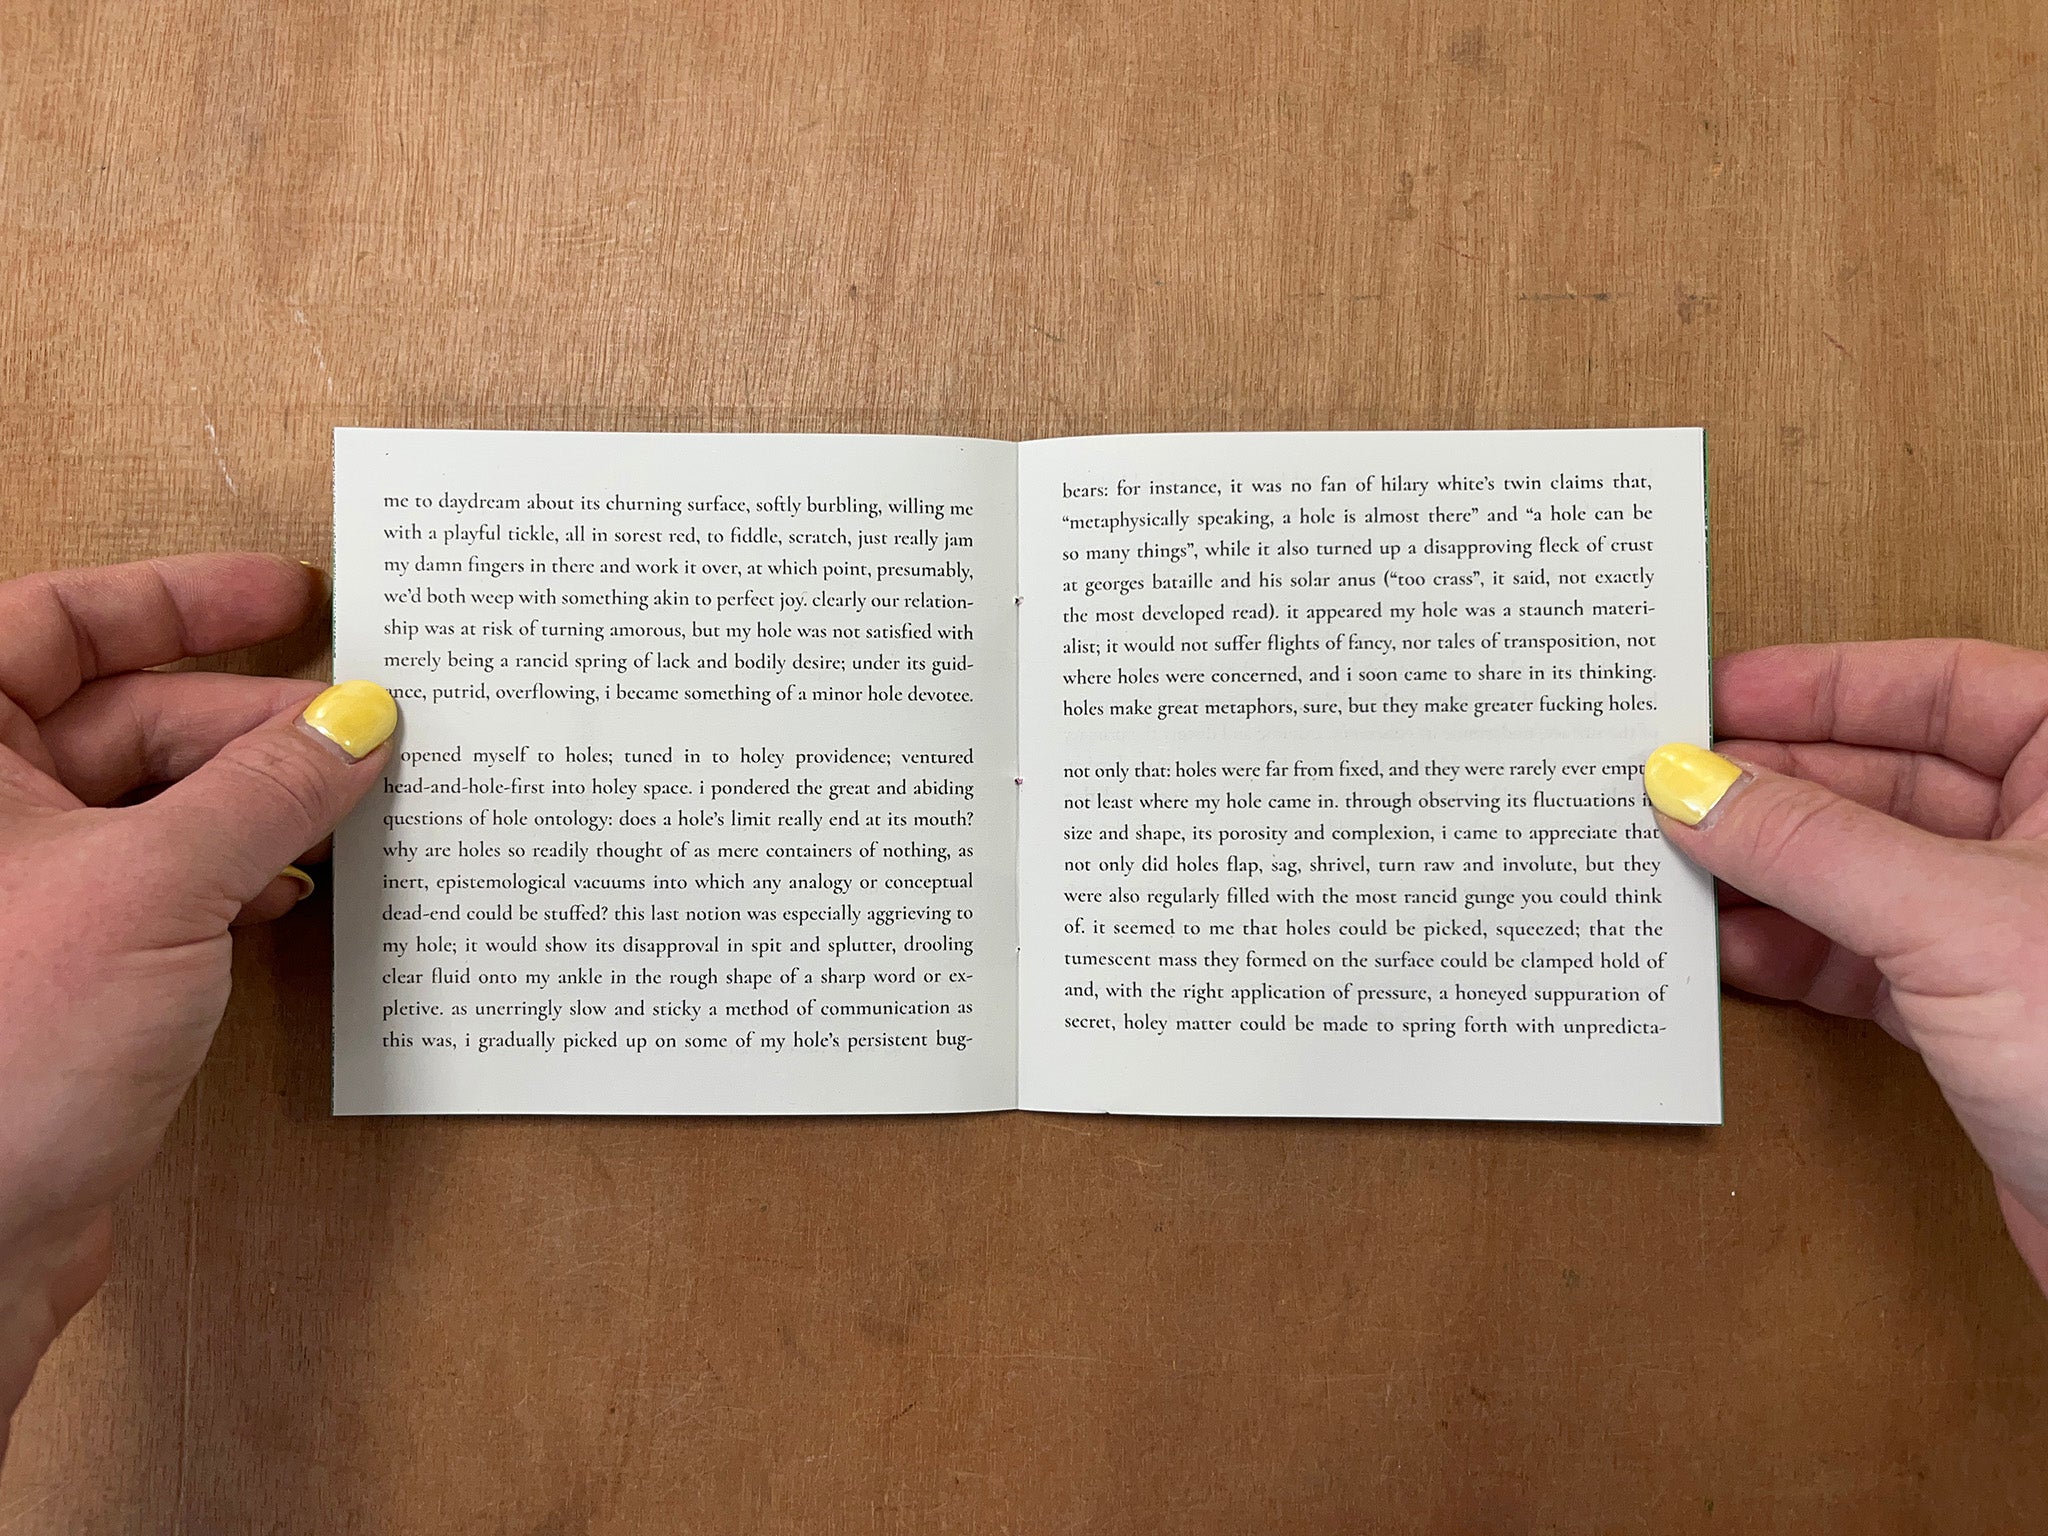 me to daydream about its churning surface, softly burbling, willing me
with a playful tickle, all in sorest red, to fiddle, scratch, just really jam
my damn fingers in there and work it over, at which point, presumably,
we’d both weep with something akin to perfect joy. clearly our relation-
ship was at risk of turning amorous, but my hole was not satisfied with
merely being a rancid spring of lack and bodily desire; under its guid-
ance, putrid, overflowing, i became something of a minor hole devotee.
opened myself to holes; tuned in to holey providence; ventured
head-and-hole-first into holey space. i pondered the great and abiding
questions of hole ontology: does a hole’s limit really end at its mouth?
why are holes so readily thought of as mere containers of nothing, as
inert, epistemological vacuums into which any analogy or conceptual
dead-end could be stuffed? this last notion was especially aggrieving to
my hole; it would show its disapproval in spit and splutter, drooling
clear fluid onto my ankle in the rough shape of a sharp word or ex-
pletive. as unerringly slow and sticky a method of communication as
this was, i gradually picked up on some of my hole’s persistent bug-
bears: for instance, it was no fan of hilary white’s twin claims that,
“metaphysically speaking, a hole is almost there” and “a hole can be
so many things”, while it also turned up a disapproving fleck of crust
at georges bataille and his solar anus (“too crass”, it said, not exactly
the most developed read). it appeared my hole was a staunch materi-
alist; it would not suffer flights of fancy, nor tales of transposition, not
where holes were concerned, and i soon came to share in its thinking.
holes make great metaphors, sure, but they make greater fucking holes.
not only that: holes were far from fixed, and they were rarely ever
not least where my hole came in. through observing its fluctuations
size and shape, its porosity and complexion, i came to appreciate that
not only did holes flap, sag, shrivel, turn raw and involute, but they
were also regularly filled with the most rancid gunge you could think
of. it seemed to me that holes could be picked, squeezed; that the
tumescent mass they formed on the surface could be clamped hold of
and, with the right application of pressure, a honeyed suppuration of
secret, holey matter could be made to spring forth with unpredicta-